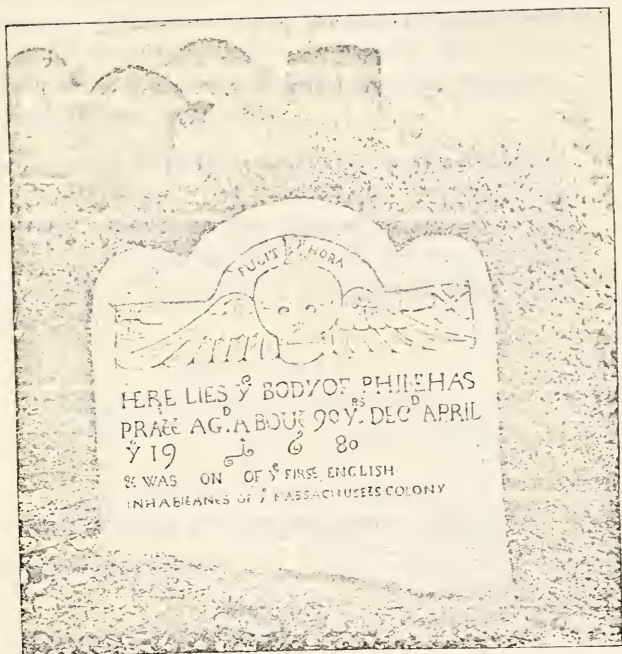 FUGIT HORA
HERE LIES yᵉ BODY OF PHINEHAS
PRATT AGᴰ. ABOUT 90 yᴿˢ. DECᴰ APRIL
Y 19 1 6 80
& WAS ON OF yᵉ FIRST ENGLISH
INHABITANTS OF yᵉ MASSACHUSETTS COLONY